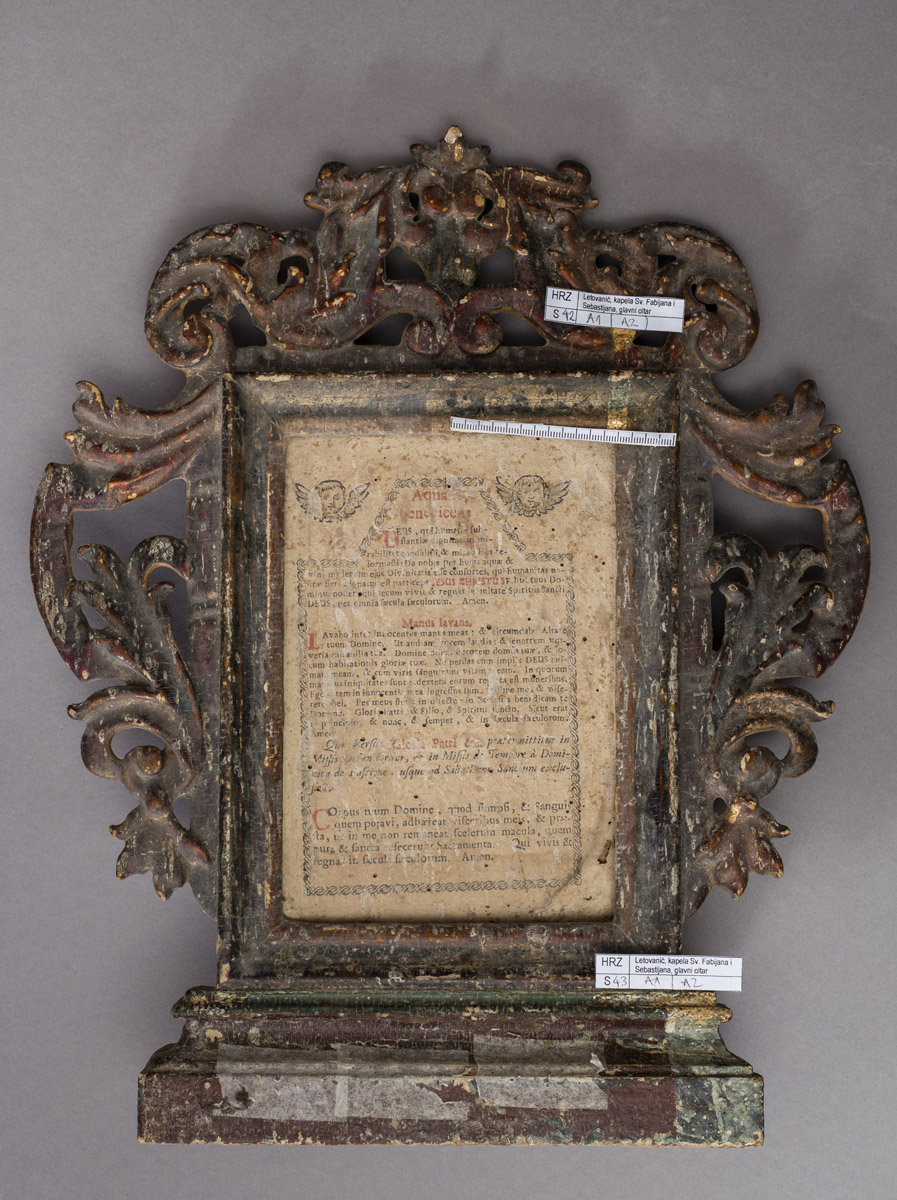 HRZ Letovanić, kapela Sv. Fabijana i
Sebastijana, glavni oltar
S 42 A1 A2
Aqua
DEUS, qui humanæ sub-
stantiæ dignitatem
mirabiliter condidisti, & mirabilius re-
formasti: da nobis per hujus aquæ &
vini mysterium, ejus Divinitatis esse consortes, qui humanitatis no-
stræ fieri dignatus est particeps, JESUS CHRISTUS Filius tuus Do-
minus noster: qui tecum vivit & regnat in unitate Spiritus Sancti
DEUS, per omnia sæcula sæculorum. Amen.
Manus lavans.
LAvabo inter innocentes manus meas: & circumdabo Altare
tuum Domine. Ut audiam vocem laudis: & enarrem uni-
versa mirabilia tua. Domine dilexi decorem domus tuæ, & lo-
cum habitationis gloriæ tuæ. Ne perdas cum impiis DEUS ani-
mam meam, & cum viris sanguinum vitam meam. In quorum
manibus iniquitates sunt: dextera eorum repleta est muneribus.
Ego autem in innocentia mea ingressus sum, redime me, & mise-
rere mei. Pes meus stetit in directo: in Ecclesiis benedicam te
Domine. Gloria Patri & Filio, & Spiritui Sancto, Sicut erat
in principio, & nunc, & semper, & in sæcula sæculorum.
Amen.
Qui Versus Gloria Patri &c. prætermittitur in
Missis Defunctorum, & in Missis de Tempore à Domi-
nica de Passione, usque ad Sabbatum Sanctum exclu-
sivè.
COrpus tuum Domine, quod sumpsi, & Sangui
quem potavi, adhæreat visceribus meis, & præ-
sta, ut in me non remaneat scelerum macula, quem
pura & sancta refecerunt Sacramenta. Qui vivis &
regnas in sæcula sæculorum. Amen.
HRZ Letovanić, kapela Sv. Fabijana i
Sebastijana, glavni oltar
S 43 A1 A2